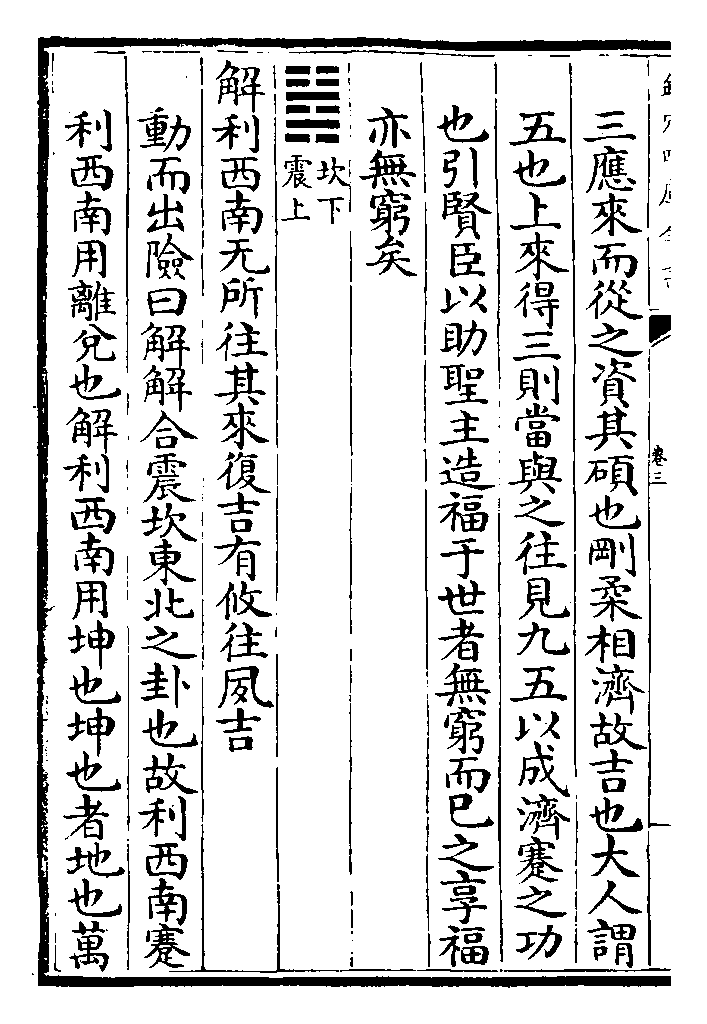 卷三
三應來而從之資其碩也剛柔相濟故吉也大人謂
五也上來得三則當與之往見九五以成濟蹇之功
也引賢臣以助聖主造福于世者無窮而已之享福
亦無窮矣
坎下
震上
解利西南无所往其來復吉有攸往夙吉
動而出險曰解解合震坎東北之卦也故利西南蹇
利西南用離兌也解利西南用坤也坤也者地也萬